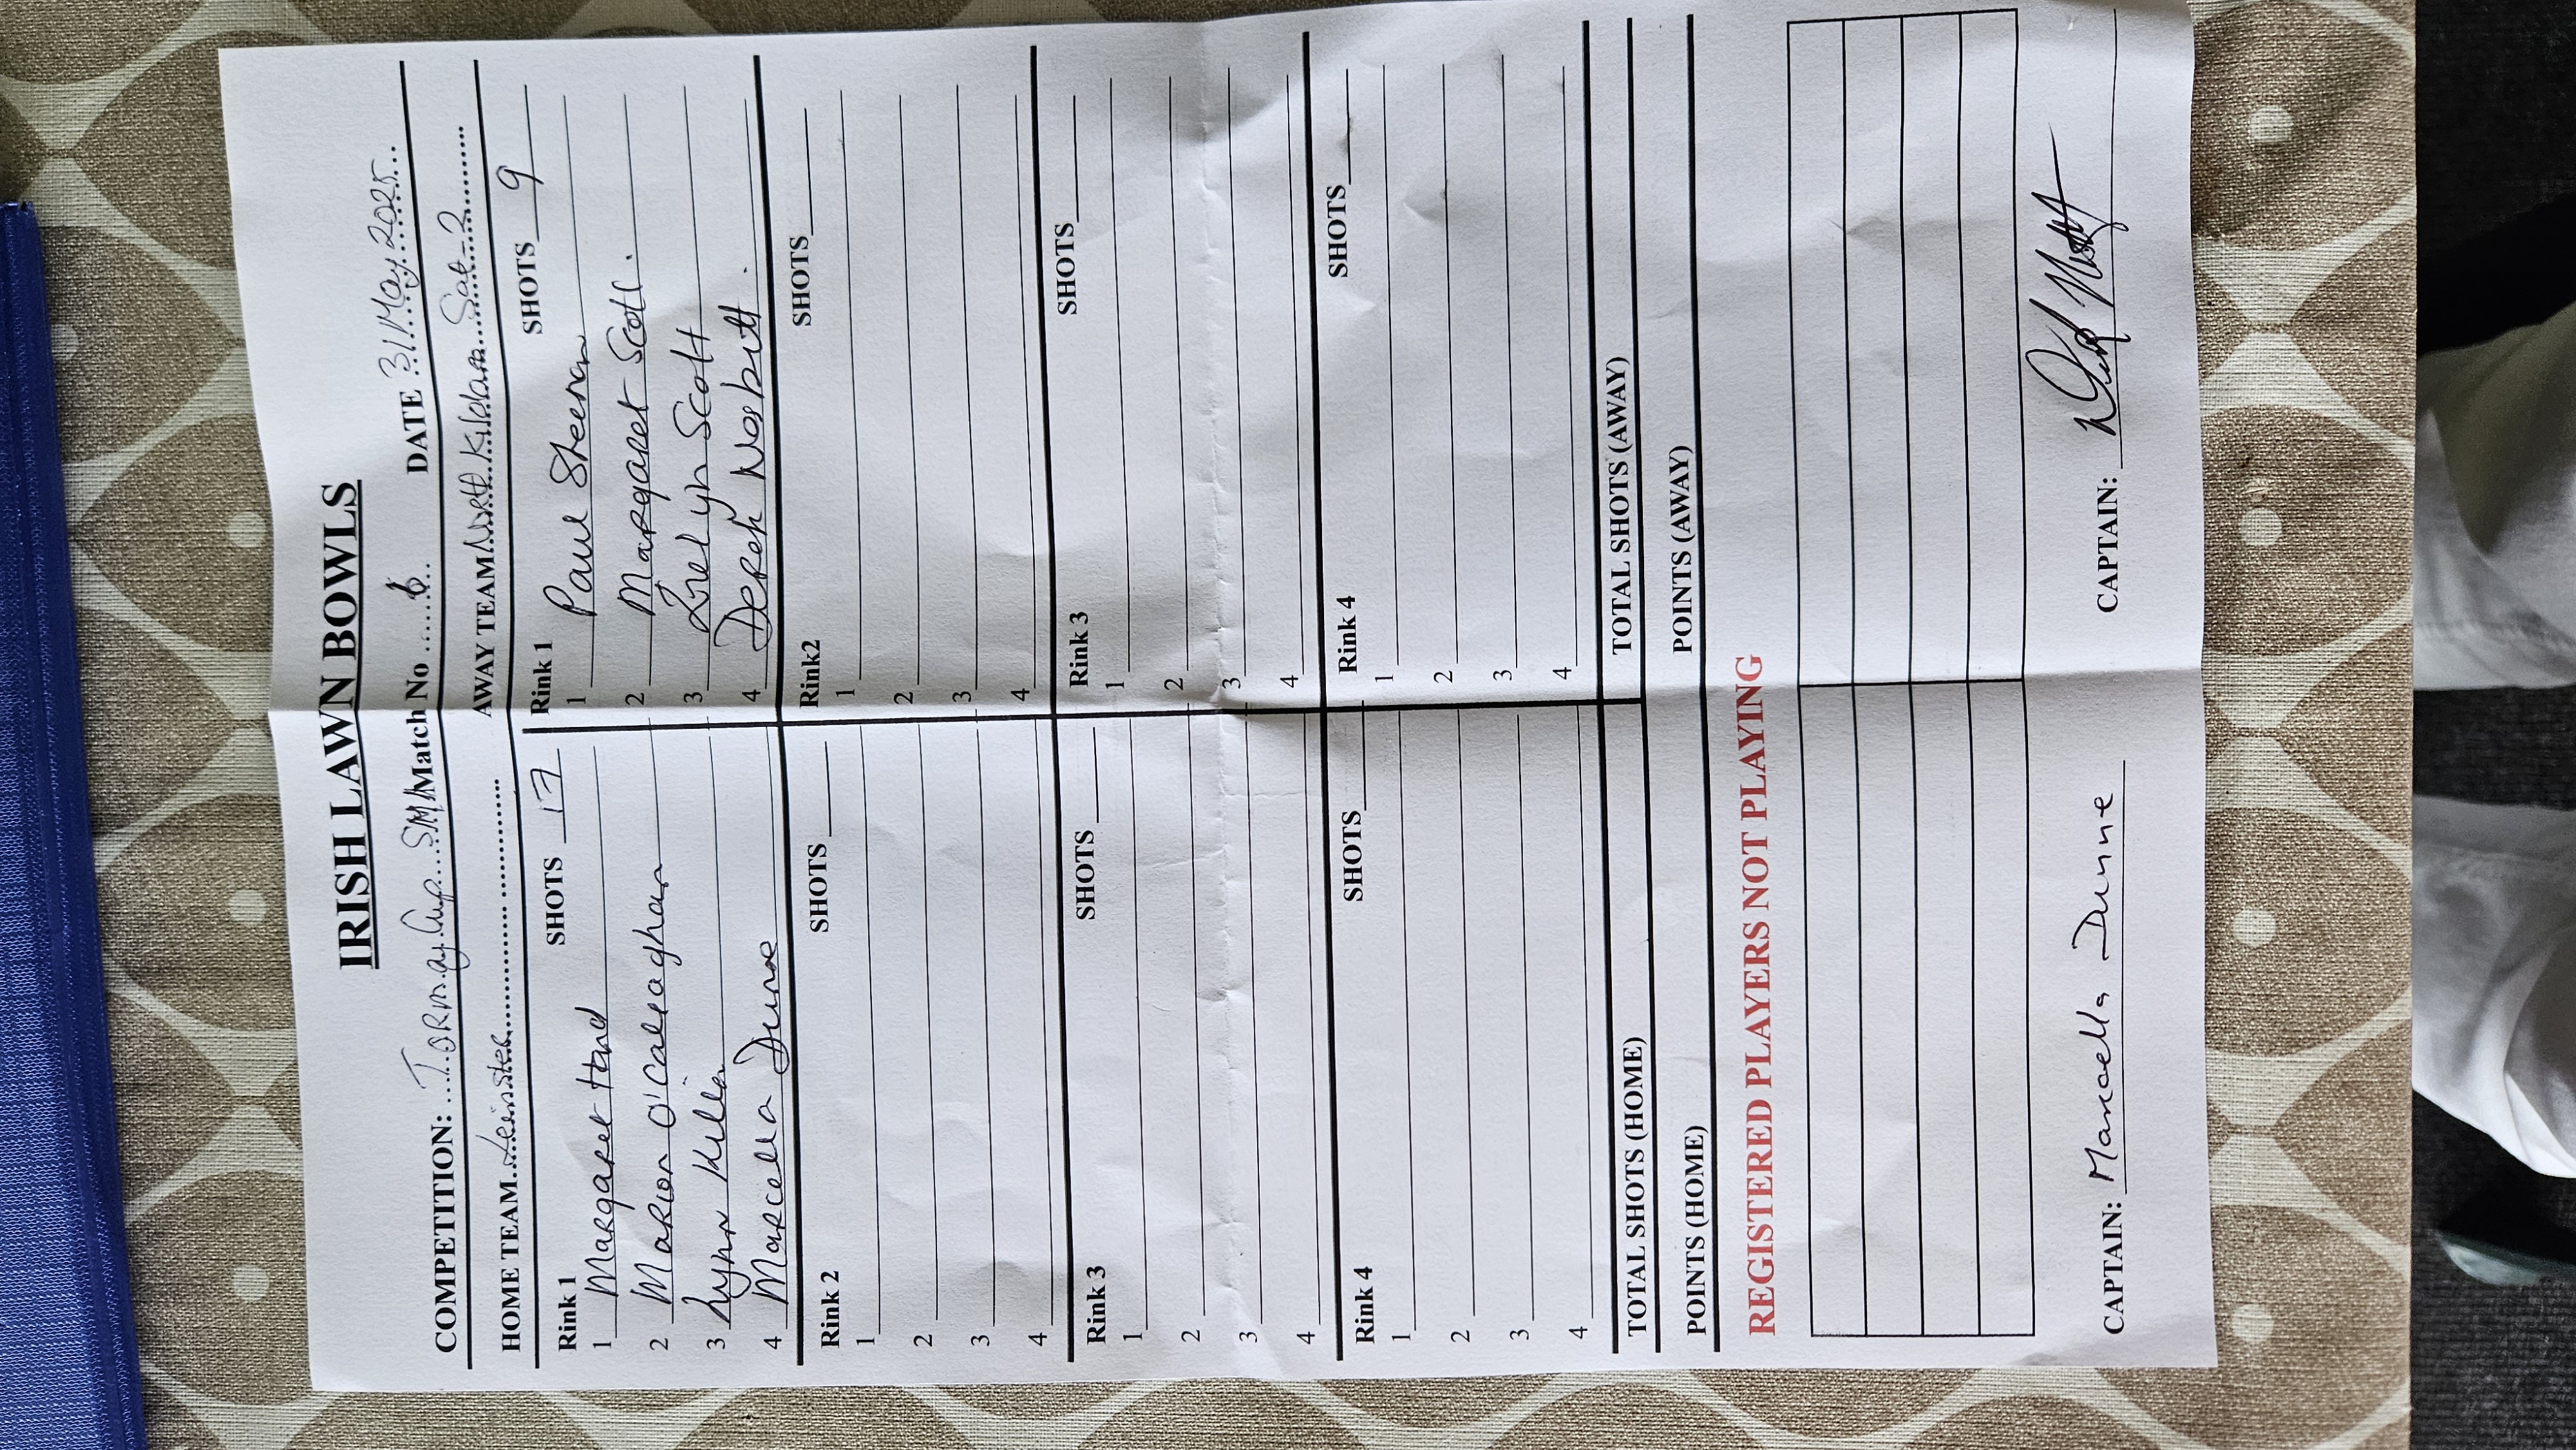 IRISH LAWN BOWLS
COMPETITION: Tormay Cup SM Match No 6 DATE 31 May 2025
HOME TEAM Leinster AWAY TEAM North Kildare Sat 2
Rink 1 SHOTS 17 Rink 1 SHOTS 9
1 Margaret Hand 1 Paul Sheeran
2 Marion O'Callaghan 2 Margaret Scott.
3 Lynn Killeen 3 Linelyn Scott
4 Marcella Dunne 4 Derek Nesbitt.
Rink 2 SHOTS Rink2 SHOTS
1 1
2 2
3 3
4 4
Rink 3 SHOTS Rink 3 SHOTS
1 1
2 2
3 3
4 4
Rink 4 SHOTS Rink 4 SHOTS
1 1
2 2
3 3
4 4
TOTAL SHOTS (HOME) TOTAL SHOTS (AWAY)
POINTS (HOME) POINTS (AWAY)
REGISTERED PLAYERS NOT PLAYING
CAPTAIN: Marcella Dunne CAPTAIN: